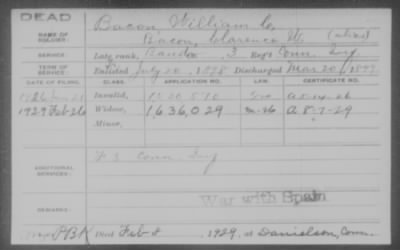 DEAD
NAME OF SOLDIER:
Bacon, William C.
Bacon, Clarence W. (alias)
SERVICE:
Late rank, 3 Reg't Conn. Inf.
TERM OF SERVICE
Enlisted July 1898 Discharged Mar. 20, 1899
DATE OF FILING.
CLASS.
APPLICATION NO.
LAW.
CERTIFICATE NO.
Invalid,
1929 Feb 26
Widow,
1,636,029
A 8-7-29
Minor,
ADDITIONAL SERVICES:
F 3 Conn. Inf
War with Spain
REMARKS:
PBK Died Feb 8, 1929, at Danielson, Conn.